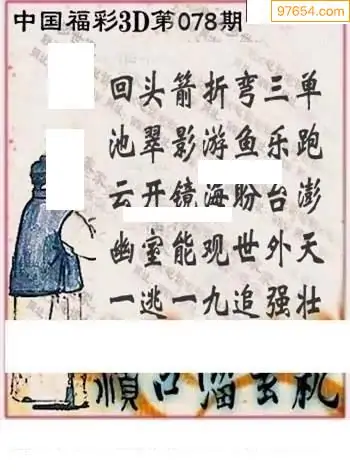 97654.com
中国福彩3D第078期
回头箭折弯三单
池翠影游鱼乐跑
云开镜海盼台澎
幽室能观世外天
一逃一九追强壮